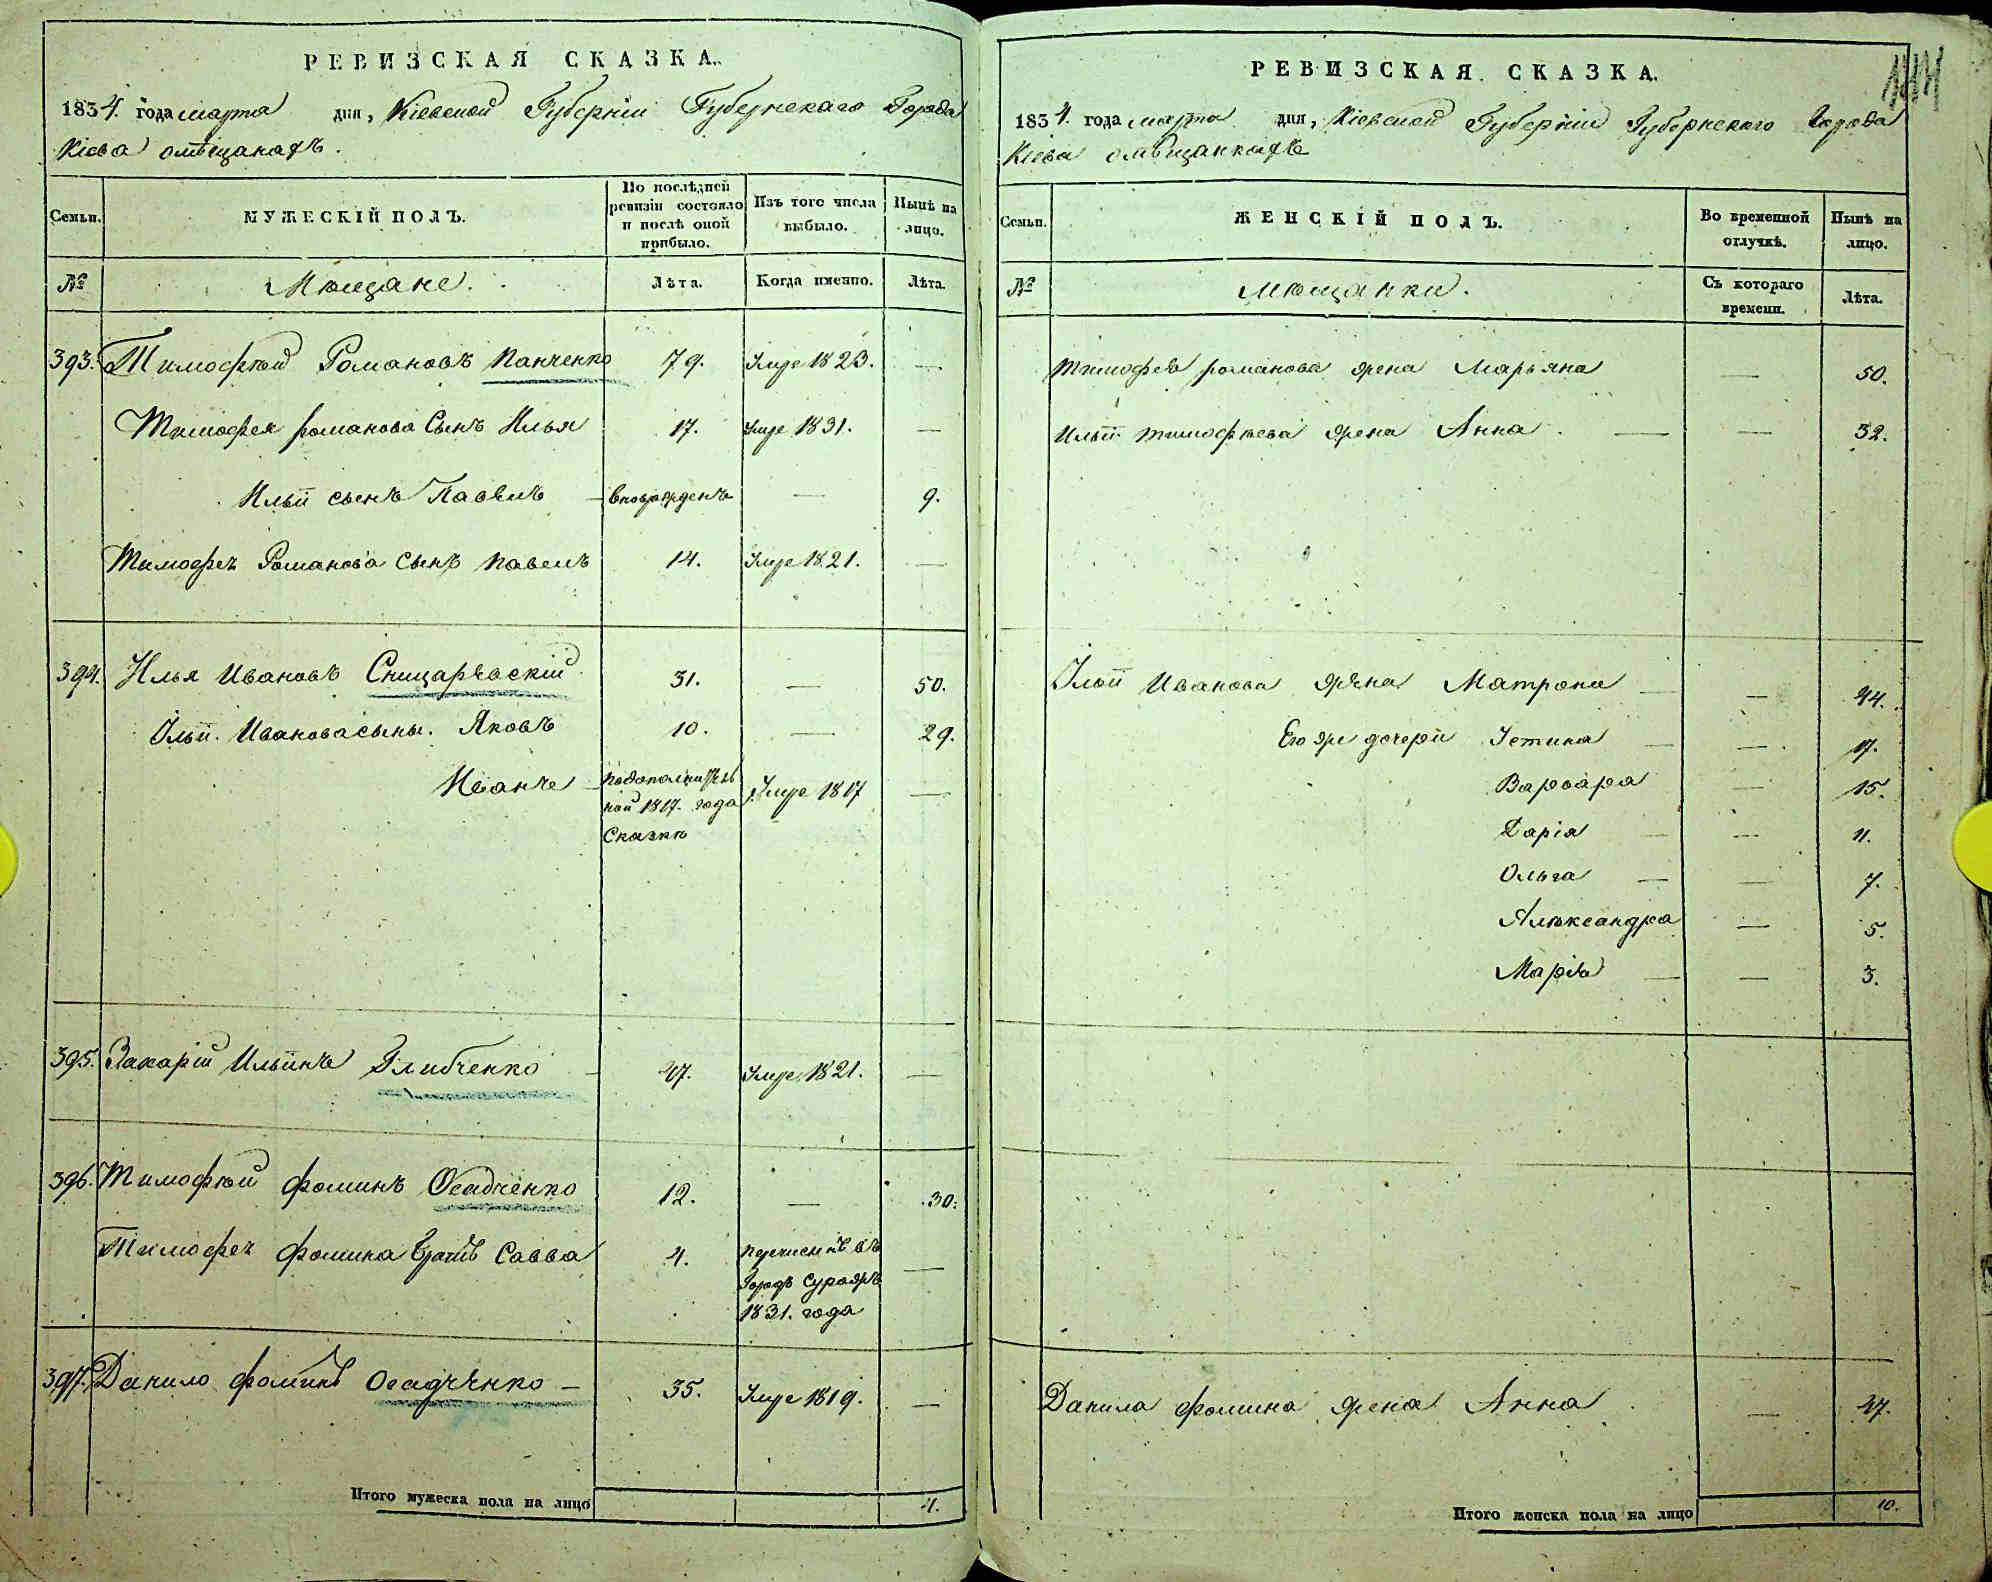 РЕВИЗСКАЯ СКАЗКА.
1834. года марта дня, Кіевской Губерніи Губернскаго Города
Кіева омѣщанахъ.
Семьи. МУЖЕСКІЙ ПОЛЪ. По послѣдней ревизіи состояло и послѣ оной прибыло. Изъ того числа выбыло. Нынѣ на лицо.
№ Мѣщане. Лѣта. Когда именно. Лѣта.
393. Тимофѣй Романовъ Панченко 79. Умре 1823. —
Тимофея романова Сынъ Илья 17. Умре 1831. —
Ильи сынъ Павелъ — вновьрожденъ — 9.
Тимофея Романова Сынъ Павелъ 14. Умре 1821. —
394. Илья Ивановъ Сницаревскій 31. — 50.
Ильи Иванова сыны. Яковъ 10. — 29.
Иванъ — Подополнитель
ной 1817. года Умре 1817 —
Сказкѣ
395. Захарій Ильинъ Глибченко — 47. Умре 1821. —
396. Тимофѣй Фоминъ Осадченко 12. — 30.
Тимофея Фомина братъ Савва 4. Перечисленъ въ —
Городъ Сураж
1831. года
397. Данило Фоминъ Осадченко — 35. Умре 1819. —
Итого мужеска пола на лицо 4.
РЕВИЗСКАЯ СКАЗКА.
1834. года марта дня, Кіевской Губерніи Губернскаго Города
Кіева омѣщанкахъ
Семьи. ЖЕНСКІЙ ПОЛЪ. Во временной отлучкѣ. Нынѣ на лицо.
№ Мѣщанки. Съ котораго времени. Лѣта.
Тимофея романова жена Марьяна — 50.
Ильи Тимофѣева жена Анна — — 32.
Ильи Иванова жена Матрона — — 44.
Его же дочери Устина — — 17.
Варвара — 15.
Дарія — — 11.
Ольга — — 7.
Александра — 5.
Марія — — 3.
Данила Фомина жена Анна — 47.
Итого женска пола на лицо 10.